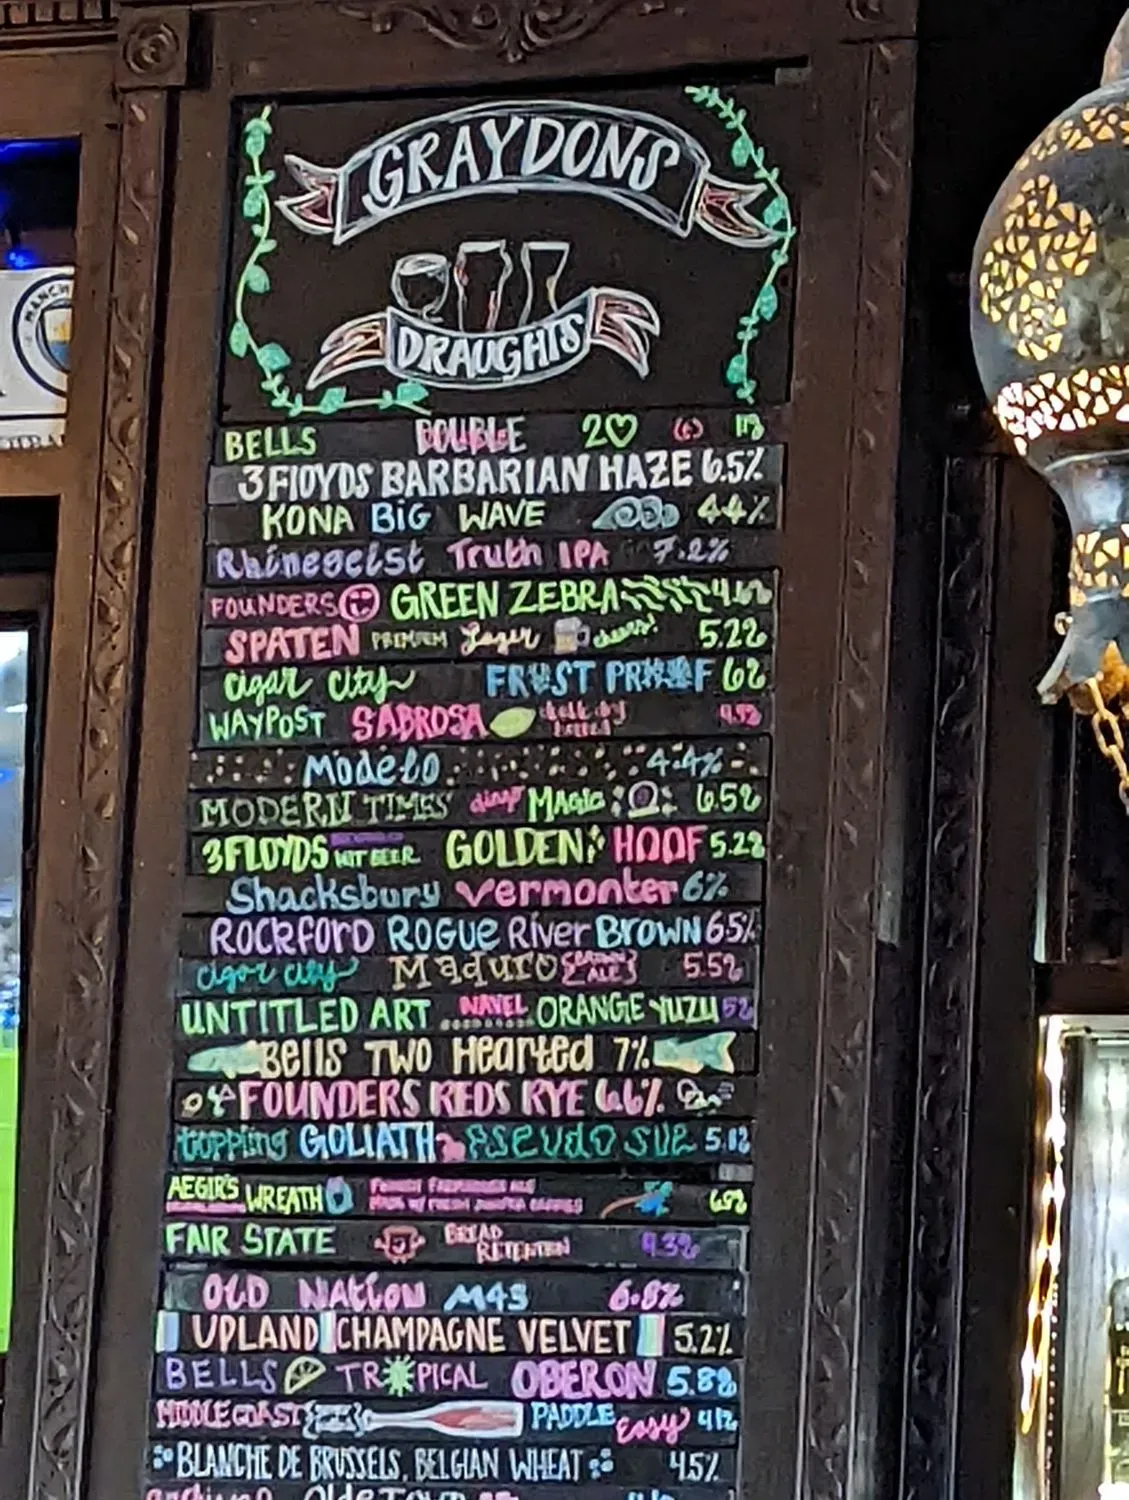 MANCH
GRAYDONS
DRAUGHTS
BELLS DOUBLE 2♡ 11%
3 FLOYDS BARBARIAN HAZE 6.5%
KONA BIG WAVE 4.4%
Rhinegeist Truth IPA 7.2%
FOUNDERS GREEN ZEBRA 4.6%
SPATEN PREMIUM Lager cheers! 5.2%
cigar city FROST PROOF 6%
WAYPOST SABROSA
Modelo 4.4%
MODERN TIMES MAGIC 6.5%
3 FLOYDS WIT BEER GOLDEN HOOF 5.2%
Shacksbury Vermonter 6%
ROCKFORD ROGUE River BROWN 6.5%
cigar city Maduro BROWN ALE 5.5%
UNTITLED ART NAVEL ORANGE YUZU 5%
Bells TWO Hearted 7%
FOUNDERS REDS RYE 6.6%
toppling GOLIATH PSEUDO SUE 5.8%
AEGIR'S WREATH
FAIR STATE BREAD RETENTION 4.3%
OLD NATION M43 6.8%
UPLAND CHAMPAGNE VELVET 5.2%
BELLS TROPICAL OBERON 5.8%
MIDDLECOAST PADDLE Easy
BLANCHE DE BRUSSELS, BELGIAN WHEAT 4.5%